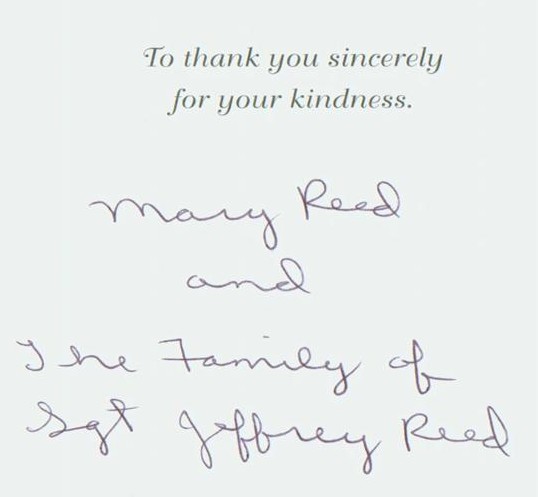 To thank you sincerely
for your kindness.
Mary Reed
and
The Family of
Sgt Jeffrey Reed